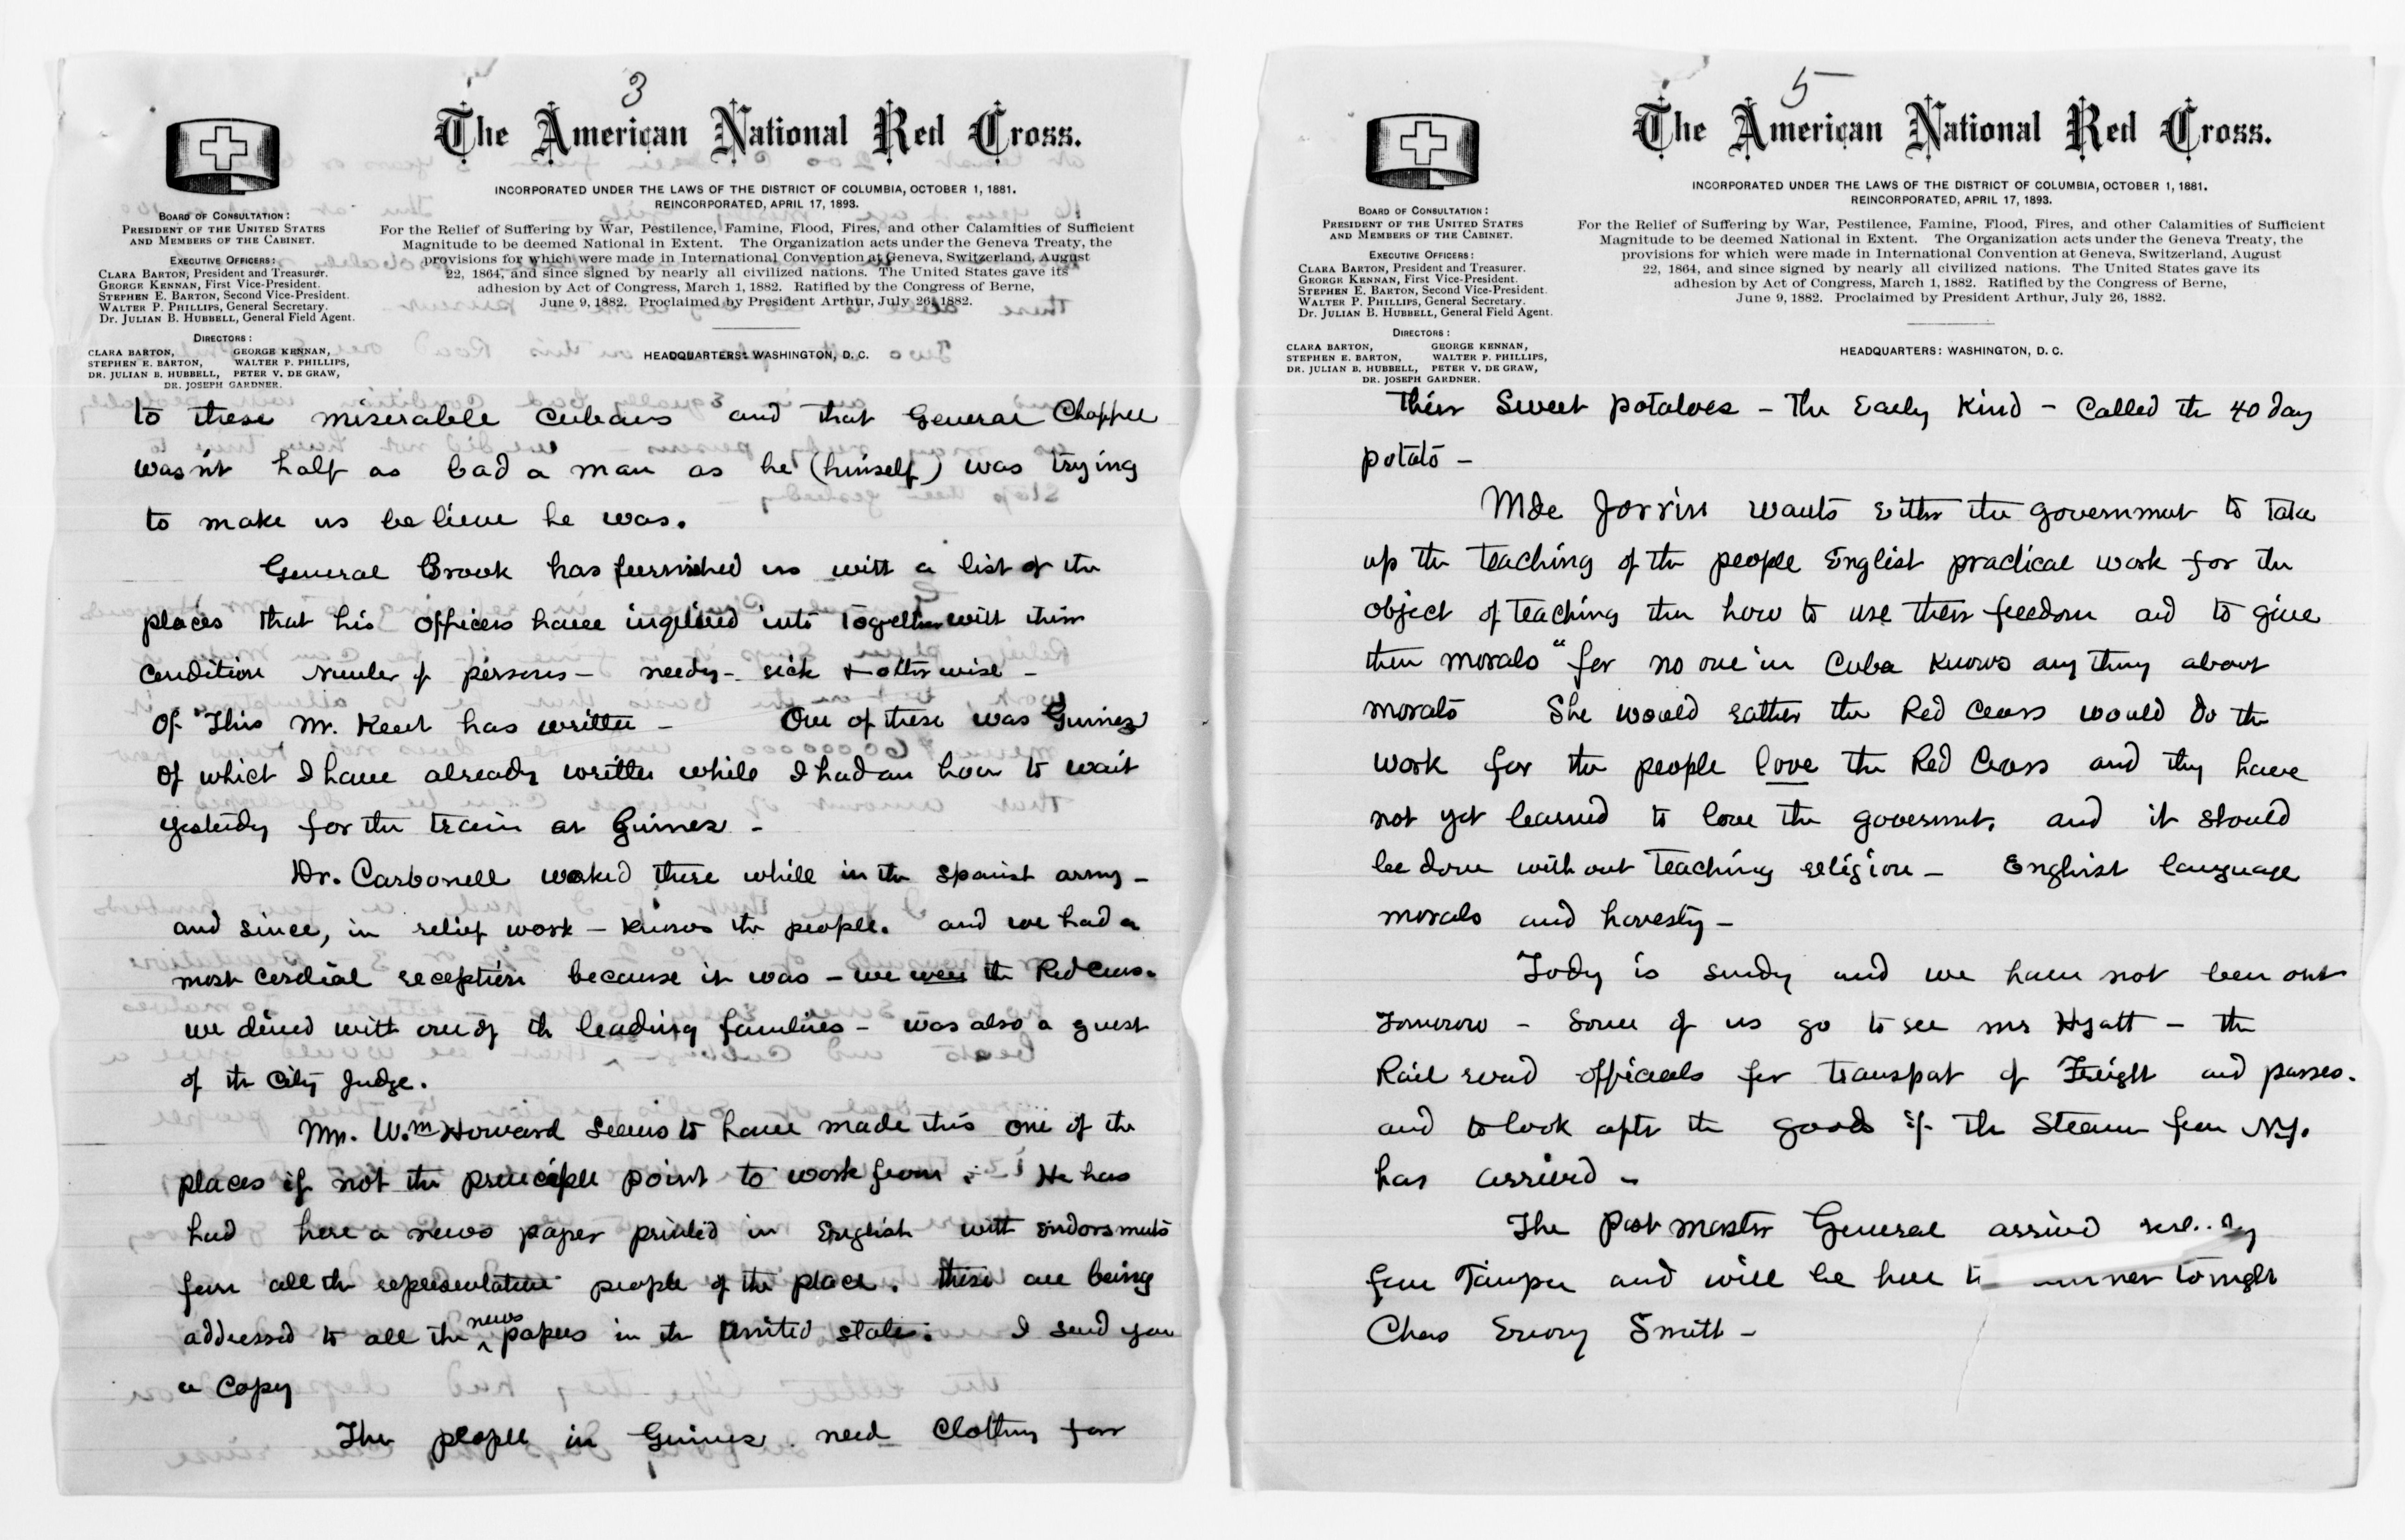 3
The American National Red Cross.
INCORPORATED UNDER THE LAWS OF THE DISTRICT OF COLUMBIA, OCTOBER 1, 1881.
REINCORPORATED, APRIL 17, 1893.
BOARD OF CONSULTATION:
PRESIDENT OF THE UNITED STATES
AND MEMBERS OF THE CABINET.
EXECUTIVE OFFICERS:
CLARA BARTON, President and Treasurer.
GEORGE KENNAN, First Vice-President.
STEPHEN E. BARTON, Second Vice-President.
WALTER P. PHILLIPS, General Secretary.
Dr. JULIAN B. HUBBELL, General Field Agent.
DIRECTORS:
CLARA BARTON, GEORGE KENNAN,
STEPHEN E. BARTON, WALTER P. PHILLIPS,
DR. JULIAN B. HUBBELL, PETER V. DE GRAW,
DR. JOSEPH GARDNER.
For the Relief of Suffering by War, Pestilence, Famine, Flood, Fires, and other Calamities of Sufficient
Magnitude to be deemed National in Extent. The Organization acts under the Geneva Treaty, the
provisions for which were made in International Convention at Geneva, Switzerland, August
22, 1864, and since signed by nearly all civilized nations. The United States gave its
adhesion by Act of Congress, March 1, 1882. Ratified by the Congress of Berne,
June 9, 1882. Proclaimed by President Arthur, July 26, 1882.
HEADQUARTERS: WASHINGTON, D. C.
to these miserable Cubans and that General Chaffee
wasn't half as bad a man as he (himself) was trying
to make us believe he was.
General Brook has furnished us with a list of the
places that his officers have inquired into together with their
condition number of persons - needy - sick & otherwise -
Of This Mr. Kent has written - One of these was Guines
of which I have already written while I had an hour to wait
yesterday for the train at Guines -
Dr. Carbonell worked there while in the Spanish army -
and since, in relief work - knows the people. and we had a
most cordial reception because it was - we were the Red Cross.
we dined with one of the leading families - was also a guest
of the City Judge.
Mr. Wm Howard seems to have made this one of the
places if not the principle point to work from. He has
had here a news paper printed in English with endorsments
from all the representative people of the place. these are being
addressed to all the news papers in the United States. I send you
a copy
The people in Guines need clothing for
5
The American National Red Cross.
INCORPORATED UNDER THE LAWS OF THE DISTRICT OF COLUMBIA, OCTOBER 1, 1881.
REINCORPORATED, APRIL 17, 1893.
BOARD OF CONSULTATION:
PRESIDENT OF THE UNITED STATES
AND MEMBERS OF THE CABINET.
EXECUTIVE OFFICERS:
CLARA BARTON, President and Treasurer.
GEORGE KENNAN, First Vice-President.
STEPHEN E. BARTON, Second Vice-President.
WALTER P. PHILLIPS, General Secretary.
Dr. JULIAN B. HUBBELL, General Field Agent.
DIRECTORS:
CLARA BARTON, GEORGE KENNAN,
STEPHEN E. BARTON, WALTER P. PHILLIPS,
DR. JULIAN B. HUBBELL, PETER V. DE GRAW,
DR. JOSEPH GARDNER.
For the Relief of Suffering by War, Pestilence, Famine, Flood, Fires, and other Calamities of Sufficient
Magnitude to be deemed National in Extent. The Organization acts under the Geneva Treaty, the
provisions for which were made in International Convention at Geneva, Switzerland, August
22, 1864, and since signed by nearly all civilized nations. The United States gave its
adhesion by Act of Congress, March 1, 1882. Ratified by the Congress of Berne,
June 9, 1882. Proclaimed by President Arthur, July 26, 1882.
HEADQUARTERS: WASHINGTON, D. C.
their Sweet potatoes - The Early Kind - Called the 40 day
potato -
Mde Jorrin wants either the government to take
up the teaching of the people English practical work for the
object of teaching them how to use their freedom and to give
them morals "for no one in Cuba knows any thing about
morals She would rather the Red Cross would do the
work for the people love the Red Cross and they have
not yet learned to love the goverment, and it should
be done without teaching religion - English language
morals and honesty -
Today is sunday and we have not been out
Tomorrow - some of us go to see Mr Hyatt - the
Rail road officials for transport of Freight and passes.
and to look after the goods if the Steamer from N.Y.
has arrived -
The Post Master General arrived
from Tampa and will be here to tonight
Chas Emory Smith -